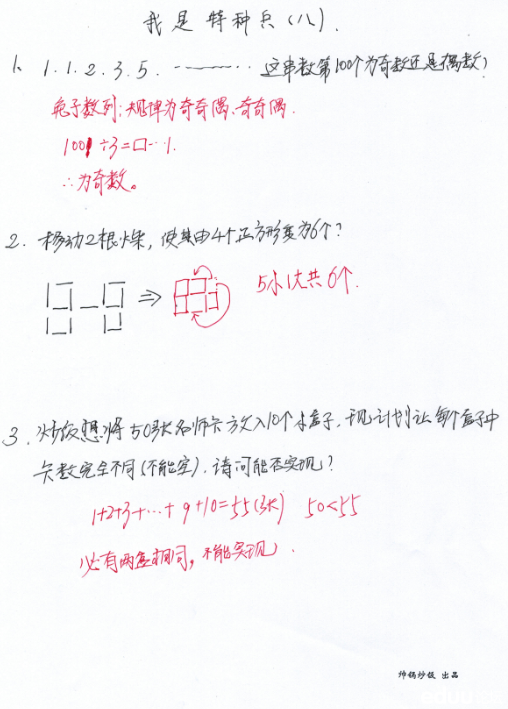 我是特种兵(八).
1. 1.1.2.3.5. ……… 这串数第100个为奇数还是偶数?
兔子数列:规律为奇奇偶、奇奇偶.
100÷3=□…1.
∴为奇数。
2. 移动2根火柴,使其由4个正方形变为6个?
⇒ 5小1大共6个.
3. 炒饭想将50张名师卡放入10个盒子,现计划让每个盒子中
卡数完全不同(不能空).请问能否实现?
1+2+3+…+9+10=55(张) 50<55
必有两盒相同,不能实现.
帅锅炒饭 出品